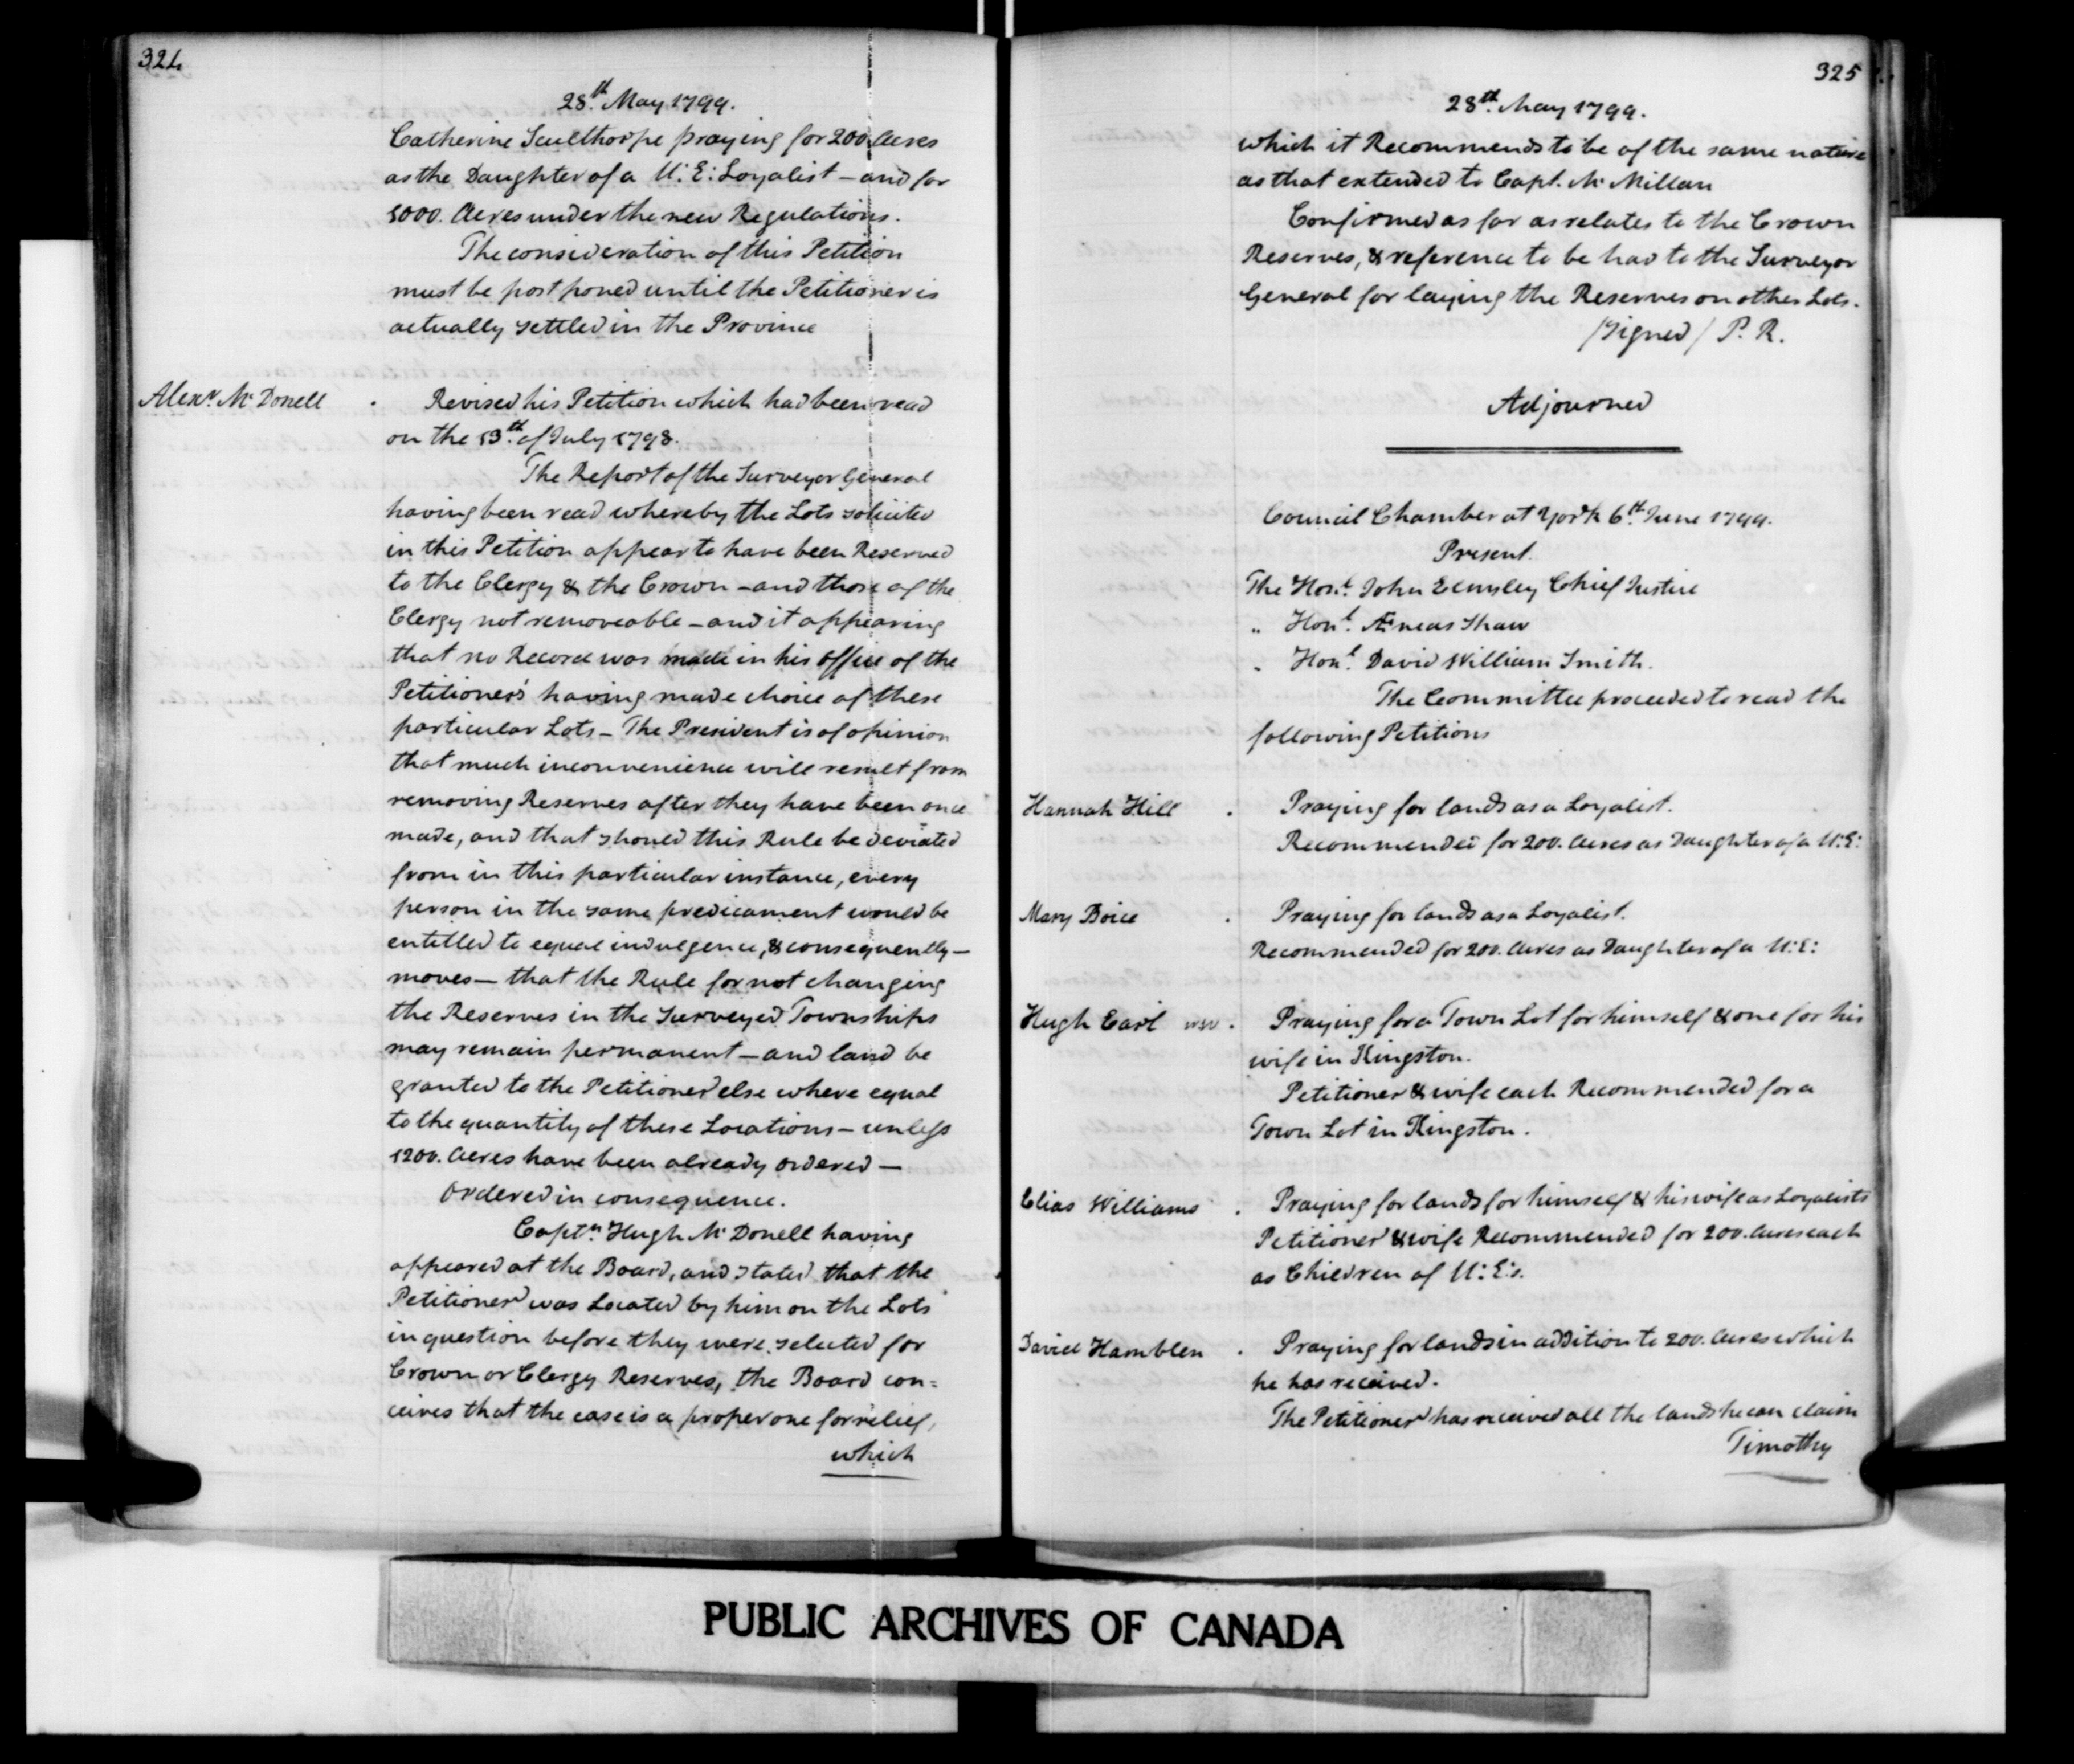 324
28th. May 1799.
Catherine Sculthorpe praying for 200 Acres
as the Daughter of a U: E: Loyalist – and for
1000. Acres under the new Regulations.
The consideration of this Petition
must be postponed until the Petitioner is
actually settled in the Province
Alexr. Mc Donell . Revised his Petition which had been read
on the 13th. of July 1798.
The Report of the Surveyor General
having been read whereby the Lots solicited
in this Petition appear to have been Reserved
to the Clergy & the Crown – and those of the
Clergy not removeable – and it appearing
that no Record was made in his Office of the
Petitioner's having made choice of these
particular Lots – The President is of opinion
that much inconvenience will result from
removing Reserves after they have been once
made, and that should this Rule be deviated
from in this particular instance, every
person in the same predicament would be
entitled to equal indulgence, & consequently –
moves – that the Rule for not changing
the Reserves in the Surveyed Townships
may remain permanent – and land be
granted to the Petitioner else where equal
to the quantity of these Locations – unless
1200. Acres have been already ordered –
Ordered in consequence.
Captn. Hugh Mc Donell having
appeared at the Board, and stated that the
Petitioner was Located by him on the Lots
in question before they were selected for
Crown or Clergy Reserves, the Board con=
ceives that the case is a proper one for relief,
which
325
28th. May 1799.
which it Recommends to be of the same nature
as that extended to Capt. Mc Millan
Confirmed as far as relates to the Crown
Reserves, & reference to be had to the Surveyor
General for laying the Reserves on other Lots.
/Signed/ P. R.
Adjourned
Council Chamber at York 6th. June 1799.
Present.
The Honl. John Elmsley Chief Justice
" Honl. Æneas Shaw
" Honl. David William Smith.
The Committee proceeded to read the
following Petitions
Hannah Hill . Praying for lands as a Loyalist.
Recommended for 200. Acres as Daughter of a U: E:
Mary Boice . Praying for lands as a Loyalist.
Recommended for 200. Acres as Daughter of a U: E:
Hugh Earl . Praying for a Town Lot for himself & one for his
wife in Kingston.
Petitioner & wife each Recommended for a
Town Lot in Kingston.
Elias Williams . Praying for lands for himself & his wife as Loyalists
Petitioner & wife Recommended for 200. Acres each
as Children of U: E:s.
David Hamblen . Praying for lands in addition to 200. Acres which
he has received.
The Petitioner has received all the lands he can claim
Timothy
PUBLIC ARCHIVES OF CANADA